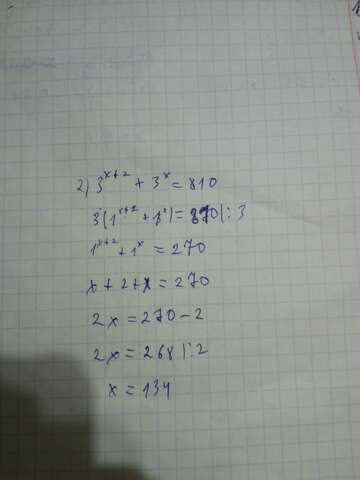 2) 3^{x+2} + 3^x = 810
3(1^{x+2} + 1^x) = 810 |: 3
1^{x+2} + 1^x = 270
x + 2 + x = 270
2x = 270 - 2
2x = 268 |: 2
x = 134